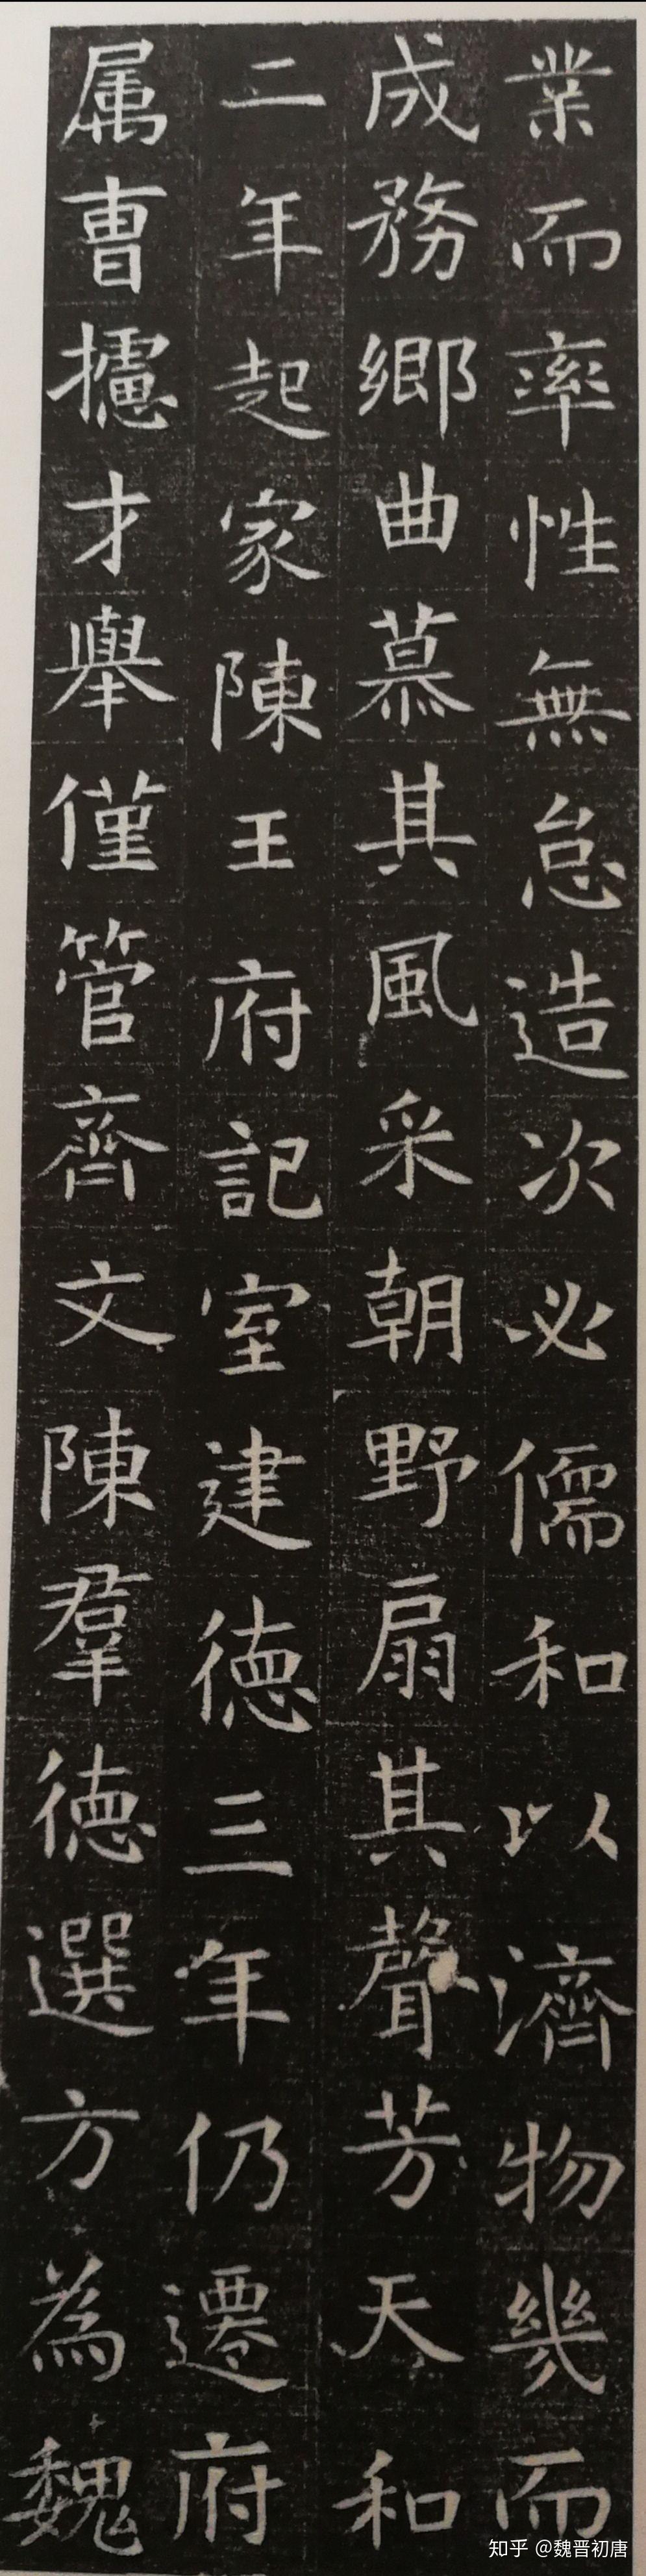 業而率性無怠造次必儒和以濟物幾而
成務鄉曲慕其風采朝野扇其聲芳天和
二年起家陳王府記室建德三年仍遷府
属曺攄才舉僅管齊文陳羣德選方為魏
知乎 @魏晋初唐